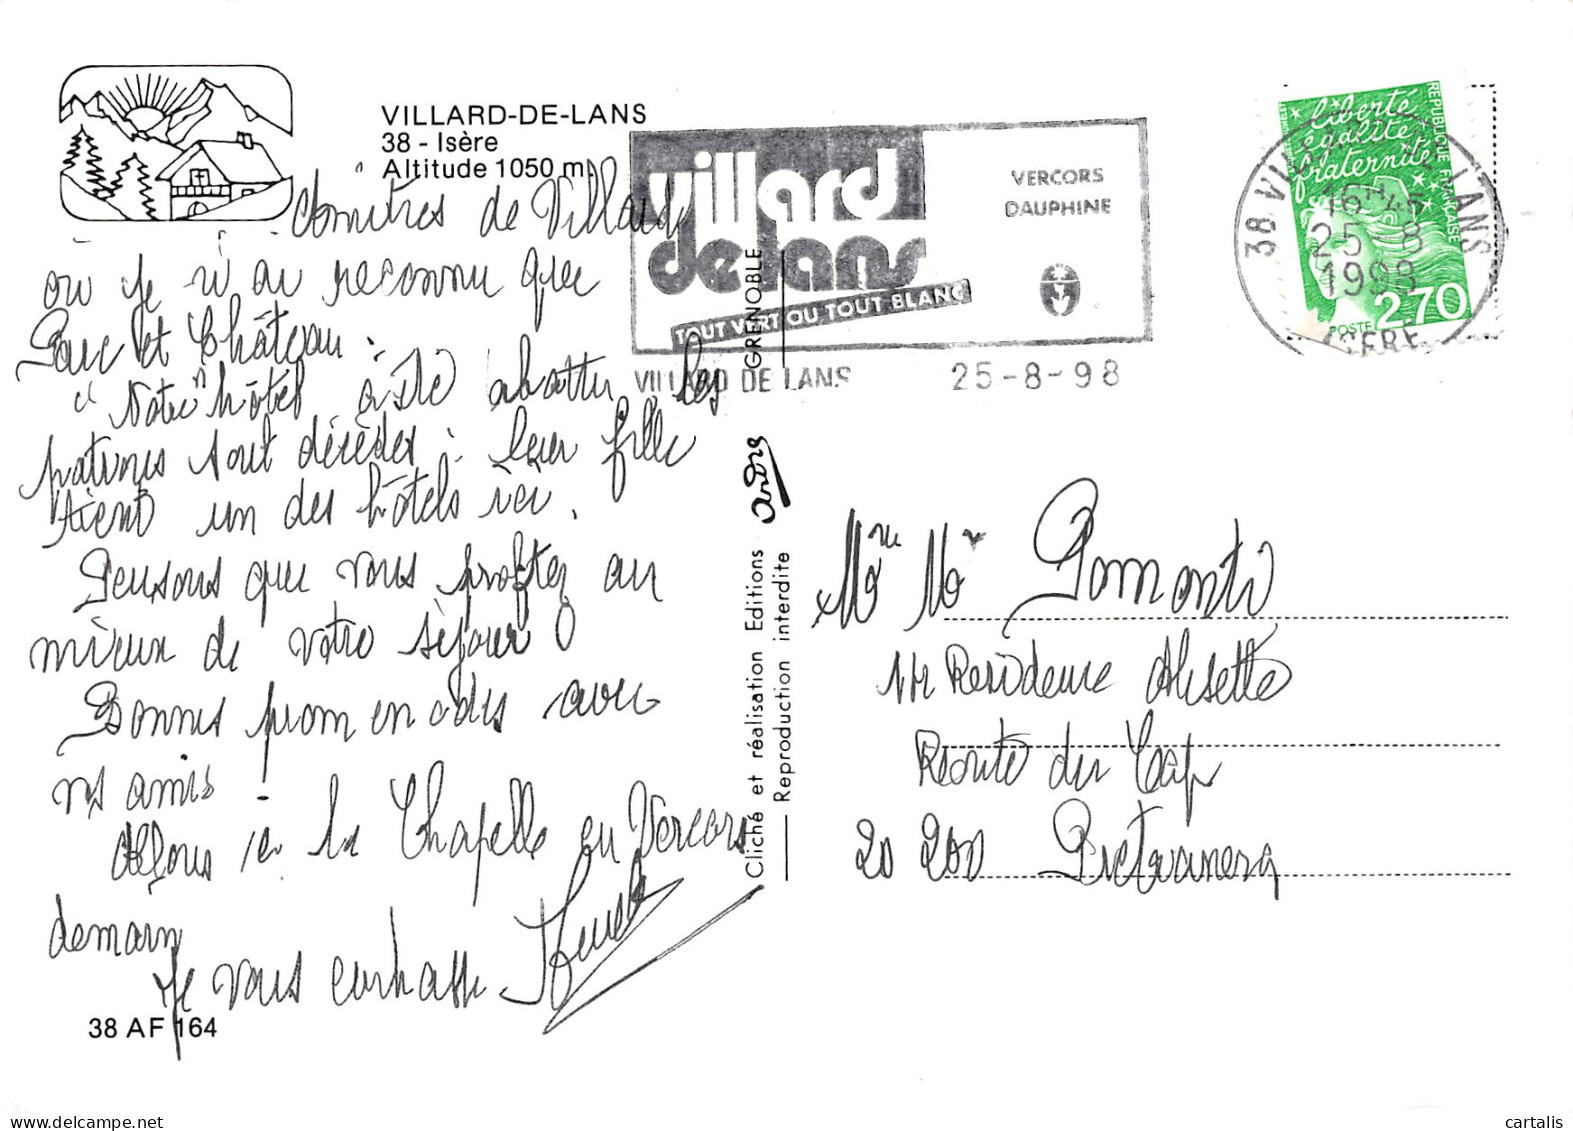 VILLARD-DE-LANS
38 - Isère
Altitude 1050 m.
de Villard
où je n'ai reconnu que
Parc et Château :
"Notre" hôtel a été abattu, les
patrons sont décédés : leur fille
tient un des hôtels ici.
Pensons que vous profitez au
mieux de votre séjour
Bonnes promenades avec
vos amis !
Allons à la Chapelle en Vercors
demain
Je vous embrasse
38 AF 164
villard
de lans
TOUT VERT OU TOUT BLANC
VERCORS
DAUPHINE
VILLARD DE LANS 25-8-98
GRENOBLE
André
Cliché et réalisation Editions
Reproduction interdite
liberté
égalité
fraternité
REPUBLIQUE FRANÇAISE
2,70
POSTE
38 VILLARD DE LANS
16H45
25-8
1998
ISERE
Mme Mr Pomonti
Résidence Alisette
Route du Cap
20 200 Pietranera
cartalis